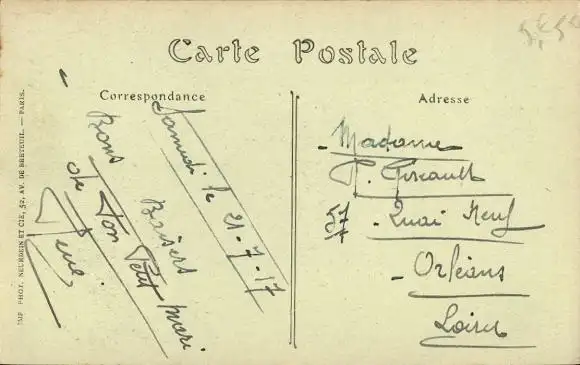 Carte Postale
Correspondance
Samedi le 21-7-17
Bons Baisers
de Ton Petit mari
Adresse
Madame
P. Girault
57 Quai Neuf
Orléans
Loiret
IMP. PHOT. NEURDEIN ET CIE, 52, AV. DE BRETEUIL. — PARIS.